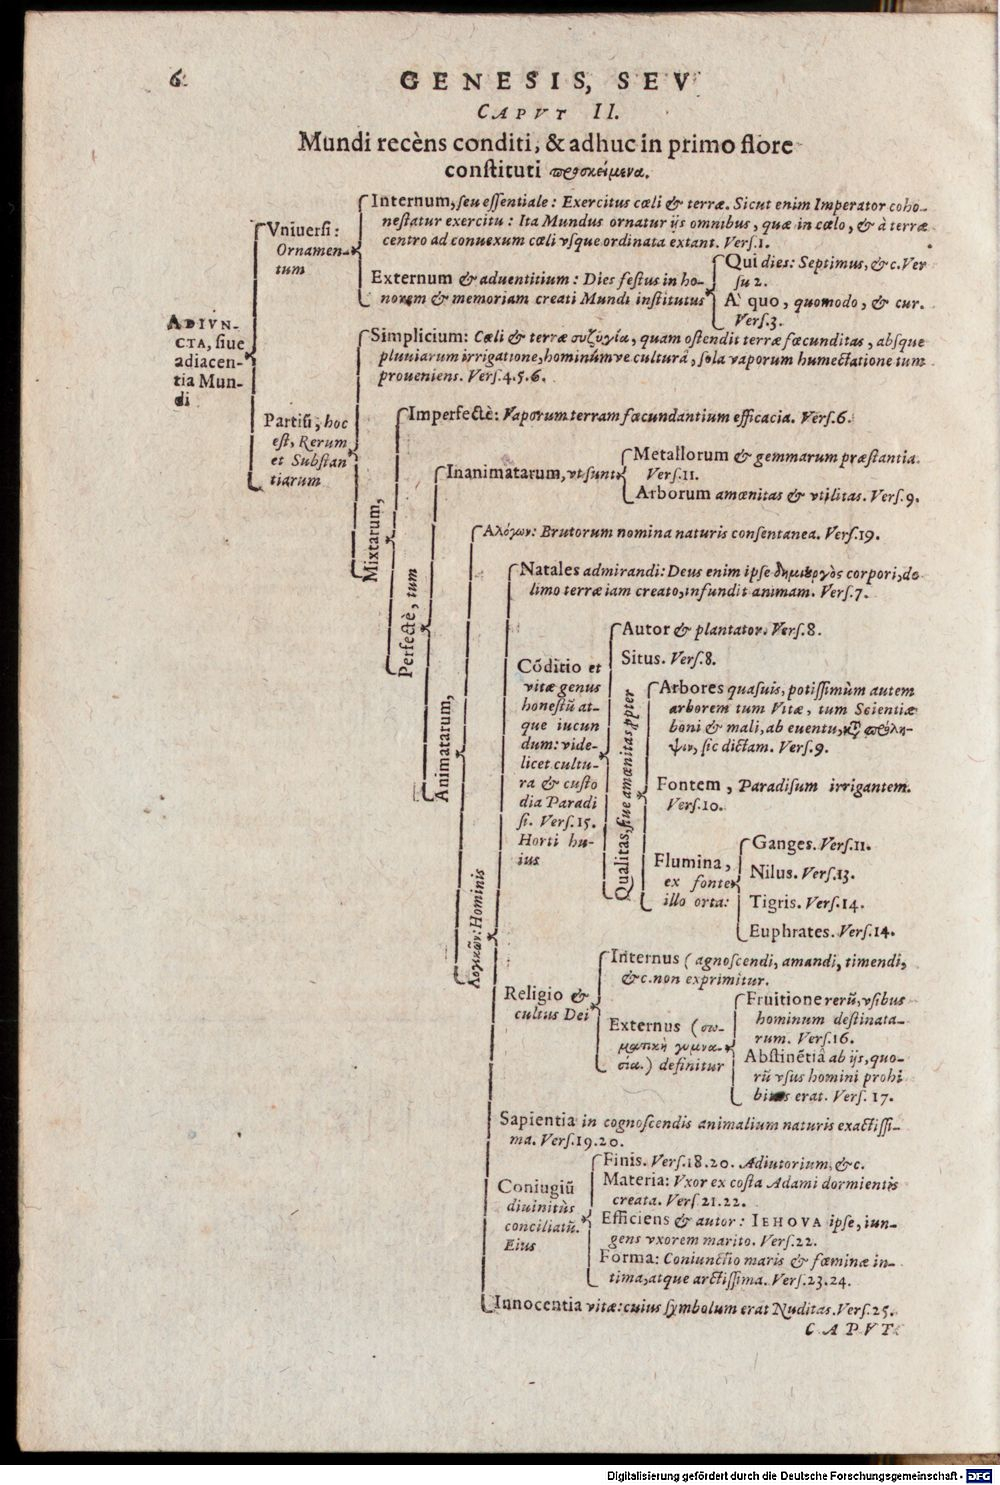 6.
GENESIS, SEV
CAPVT II.
Mundi recèns conditi, & adhuc in primo flore
constituti προσκείμενα.
ADIVN-
CTA, siue
adiacen-
tia Mun-
di
Vniuersi:
Ornamen-
tum
Internum, seu essentiale: Exercitus cœli & terræ. Sicut enim Imperator coho-
nestatur exercitu: Ita Mundus ornatur ijs omnibus, quæ in cœlo, & à terræ
centro ad conuexum cœli vsque ordinata extant. Vers.1.
Externum & aduentitium: Dies festus in ho-
norem & memoriam creati Mundi institutus
Qui dies: Septimus, &c. Ver
su 2.
A quo, quomodo, & cur.
Vers.3.
Partiũ, hoc
est, Rerum
et Substan
tiarum
Simplicium: Cœli & terræ συζυγία, quam ostendit terræ fœcunditas, absque
pluuiarum irrigatione, hominúmve culturâ, sola vaporum humectatione tum
proueniens. Vers.4.5.6.
Mixtarum,
Imperfectè: Vaporum terram fœcundantium efficacia. Vers.6.
Perfectè, tum
Inanimatarum, vt sunt
Metallorum & gemmarum præstantia.
Vers.11.
Arborum amœnitas & vtilitas. Vers.9.
Animatarum,
Αλόγων: Brutorum nomina naturis consentanea. Vers.19.
Λογικῶν: Hominis
Natales admirandi: Deus enim ipse δημιουργὸς corpori, de
limo terræ iam creato, infundit animam. Vers.7.
Cõditio et
vitæ genus
honestũ at-
que iucun
dum: vide-
licet cultu-
ra & custo
dia Paradi
si. Vers.15.
Horti hu-
ius
Autor & plantator. Vers.8.
Situs. Vers.8.
Qualitas, siue amœnitas ꝓpter
Arbores quasuis, potissimùm autem
arborem tum Vitæ, tum Scientiæ
boni & mali, ab euentu, κατὰ πρόλη-
ψιν, sic dictam. Vers.9.
Fontem, Paradisum irrigantem.
Vers.10.
Flumina,
ex fonte
illo orta:
Ganges. Vers.11.
Nilus. Vers.13.
Tigris. Vers.14.
Euphrates. Vers.14.
Religio &
cultus Dei
Internus (agnoscendi, amandi, timendi,
&c. non exprimitur.
Externus (σω-
ματικὴ γυμνα-
σία.) definitur
Fruitione rerũ, vsibus
hominum destinata-
rum. Vers.16.
Abstinẽtiâ ab ijs, quo-
rũ vsus homini prohi
bitus erat. Vers. 17.
Sapientia in cognoscendis animalium naturis exactissi-
ma. Vers.19.20.
Coniugiũ
diuinitùs
conciliatũ.
Eius
Finis. Vers.18.20. Adiutorium, &c.
Materia: Vxor ex costa Adami dormientis
creata. Vers 21.22.
Efficiens & autor: IEHOVA ipse, iun-
gens vxorem marito. Vers.22.
Forma: Coniunctio maris & fœminæ in-
tima, atque arctissima. Vers.23.24.
Innocentia vitæ: cuius symbolum erat Nuditas. Vers.25.
CAPVT
Digitalisierung gefördert durch die Deutsche Forschungsgemeinschaft - DFG